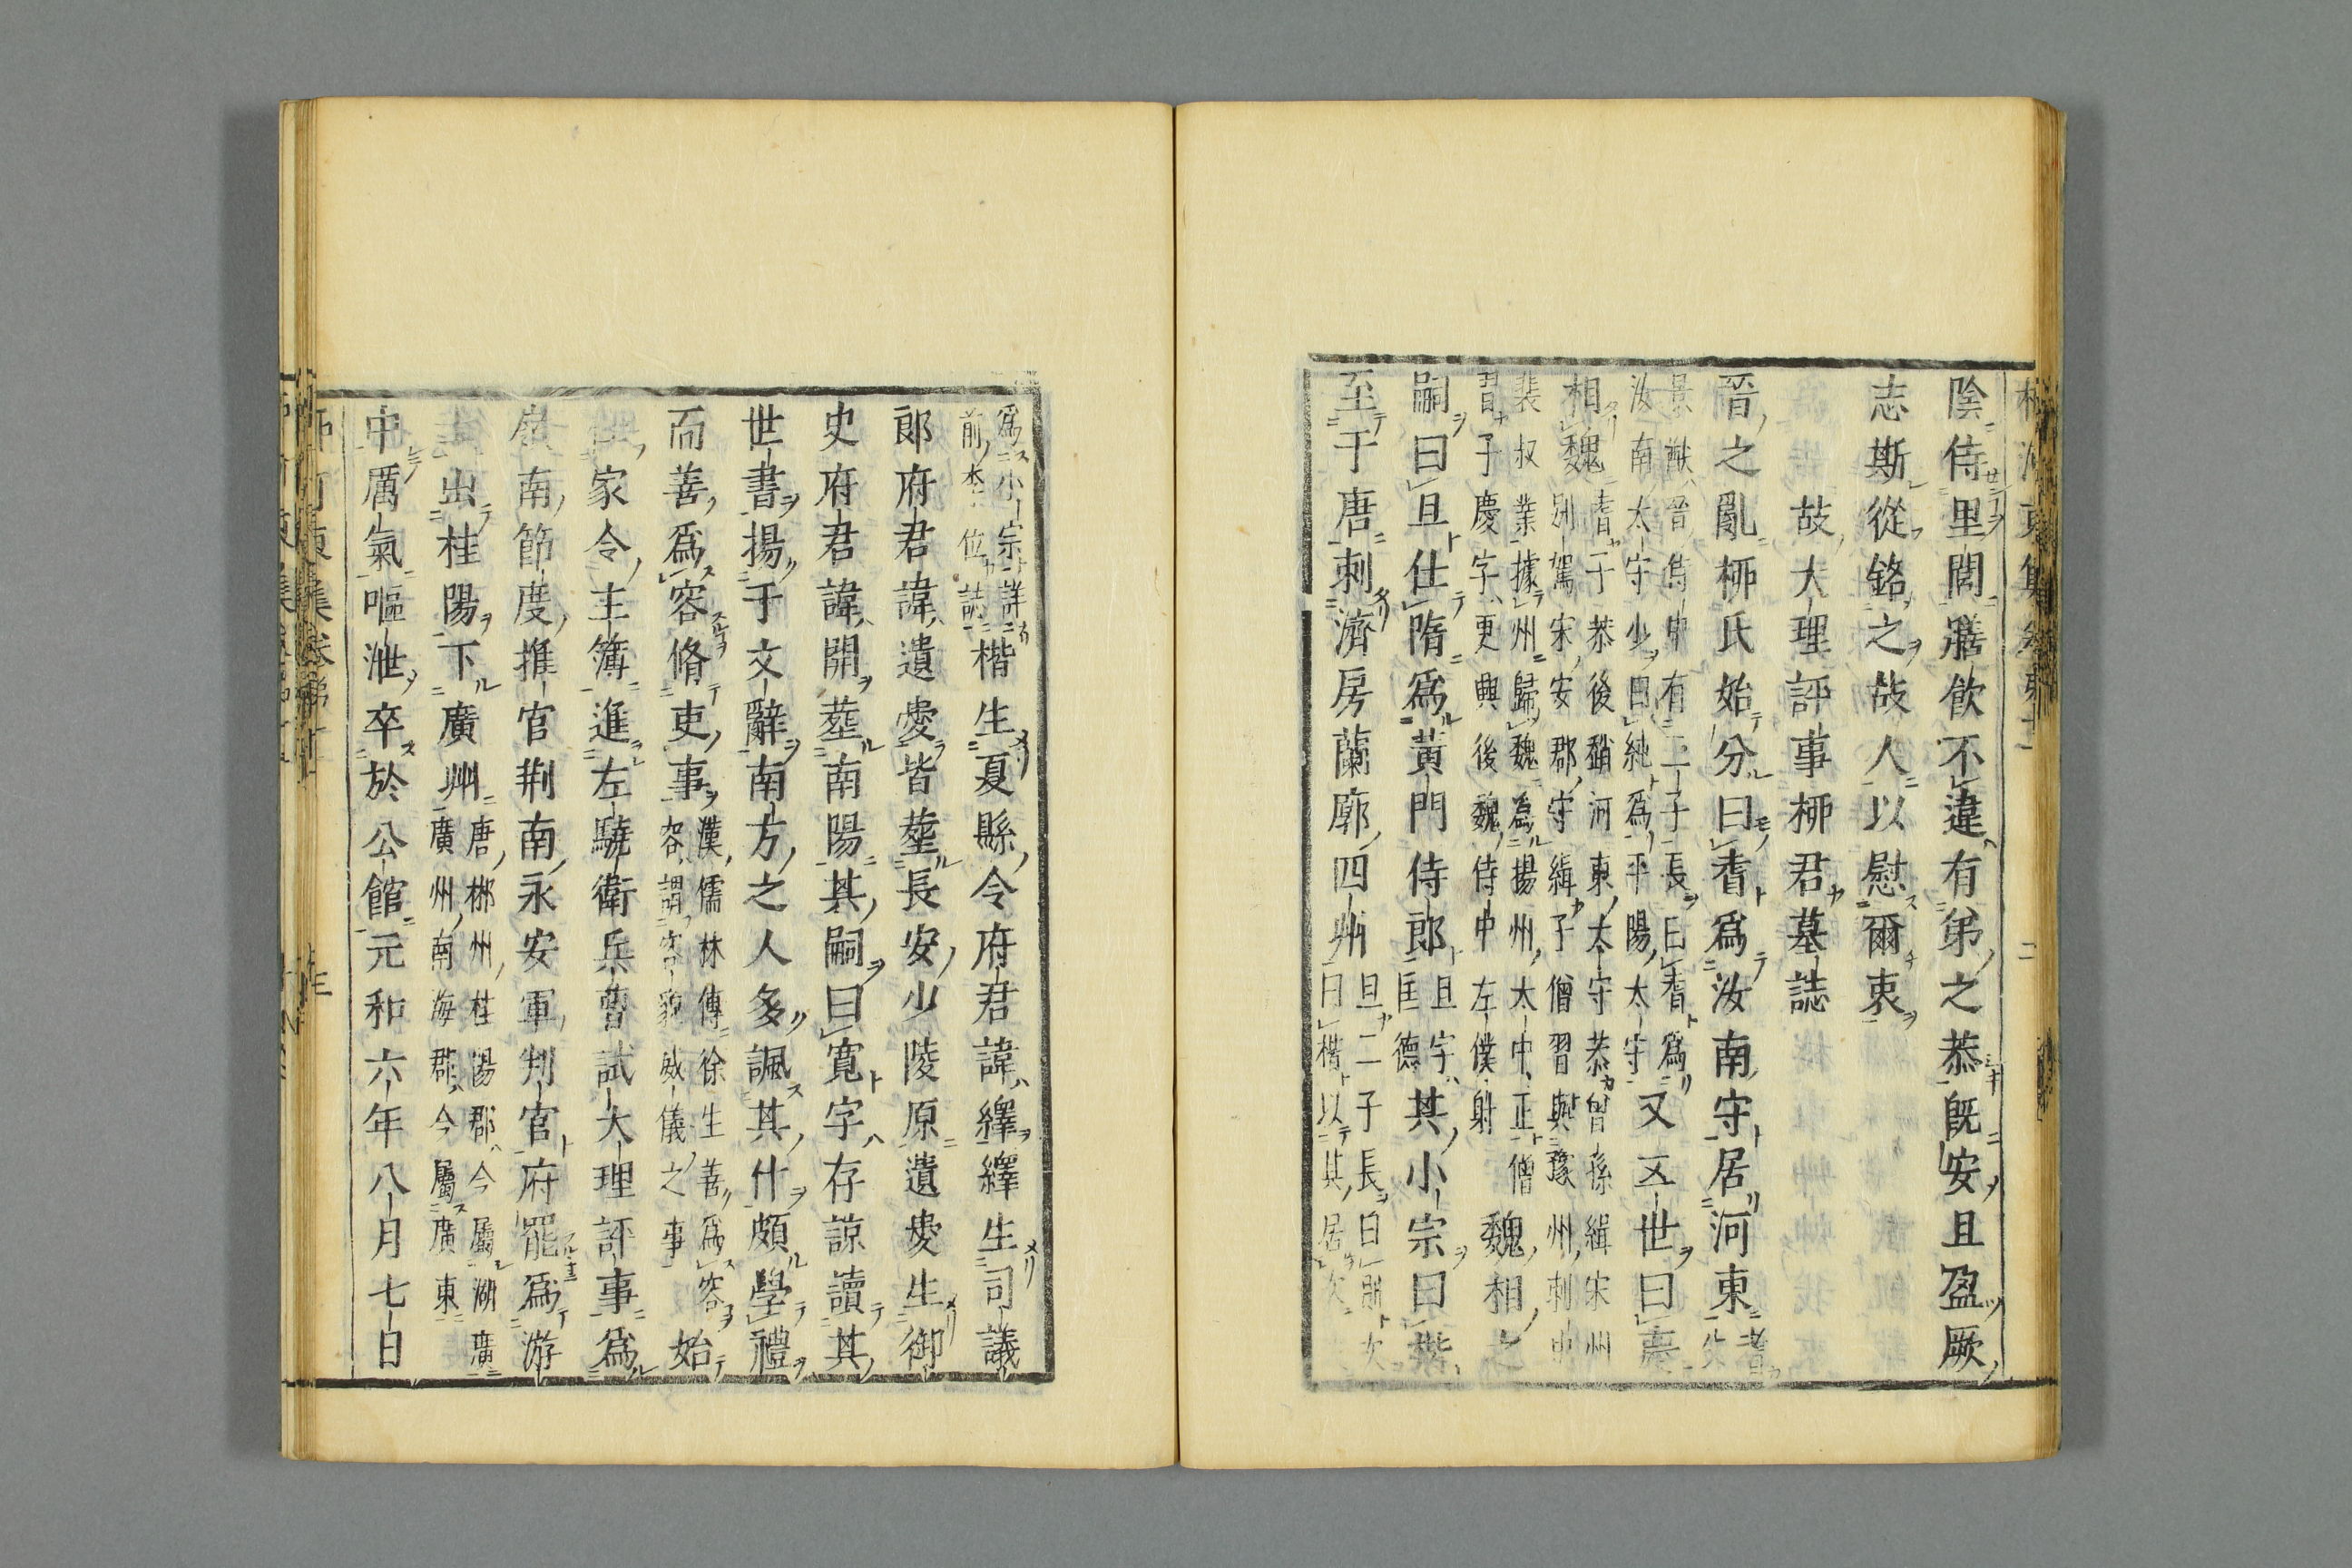 陰侍里閭膳飲不違有弟之恭旣安且盈厥
志斯從銘之故人以慰爾衷
故大理評事柳君墓誌
晉之亂柳氏始分曰耆爲汝南守居河東
景猷晉侍中有二子長曰耆爲
汝南太守少曰純爲平陽太守
又五世曰慶
相魏
耆子恭後魏河東太守恭曾孫緝宋州
別駕宋安郡守緝子僧習與豫州刺史
裴叔業據州歸魏爲揚州大中正僧
習子慶字更興後魏侍中左僕射
魏相之
嗣曰旦仕隋爲黃門侍郎
旦字
匡德
其小宗曰楷
至于唐刺濟房蘭廓四州
旦二子長曰則次
曰楷以其居次
爲小宗詳
前
誌
楷生夏縣令府君諱繹繹生司議
郎府君諱遺愛皆葬長安少陵原遺愛生御
史府君諱開葬南陽其嗣曰寬字存諒讀其
世書揚于文辭南方之人多諷其什頗學禮
而善爲容脩吏事
漢儒林傳徐生善爲容
容謂容貌威儀之事
始
家令主簿進左驍衛兵曹試大理評事爲
嶺南節度推官荆南永安軍判官府罷爲游
士出桂陽下廣州
唐郴州桂陽郡今屬湖廣
廣州南海郡今屬廣東
中厲氣嘔泄卒於公館元和六年八月七日